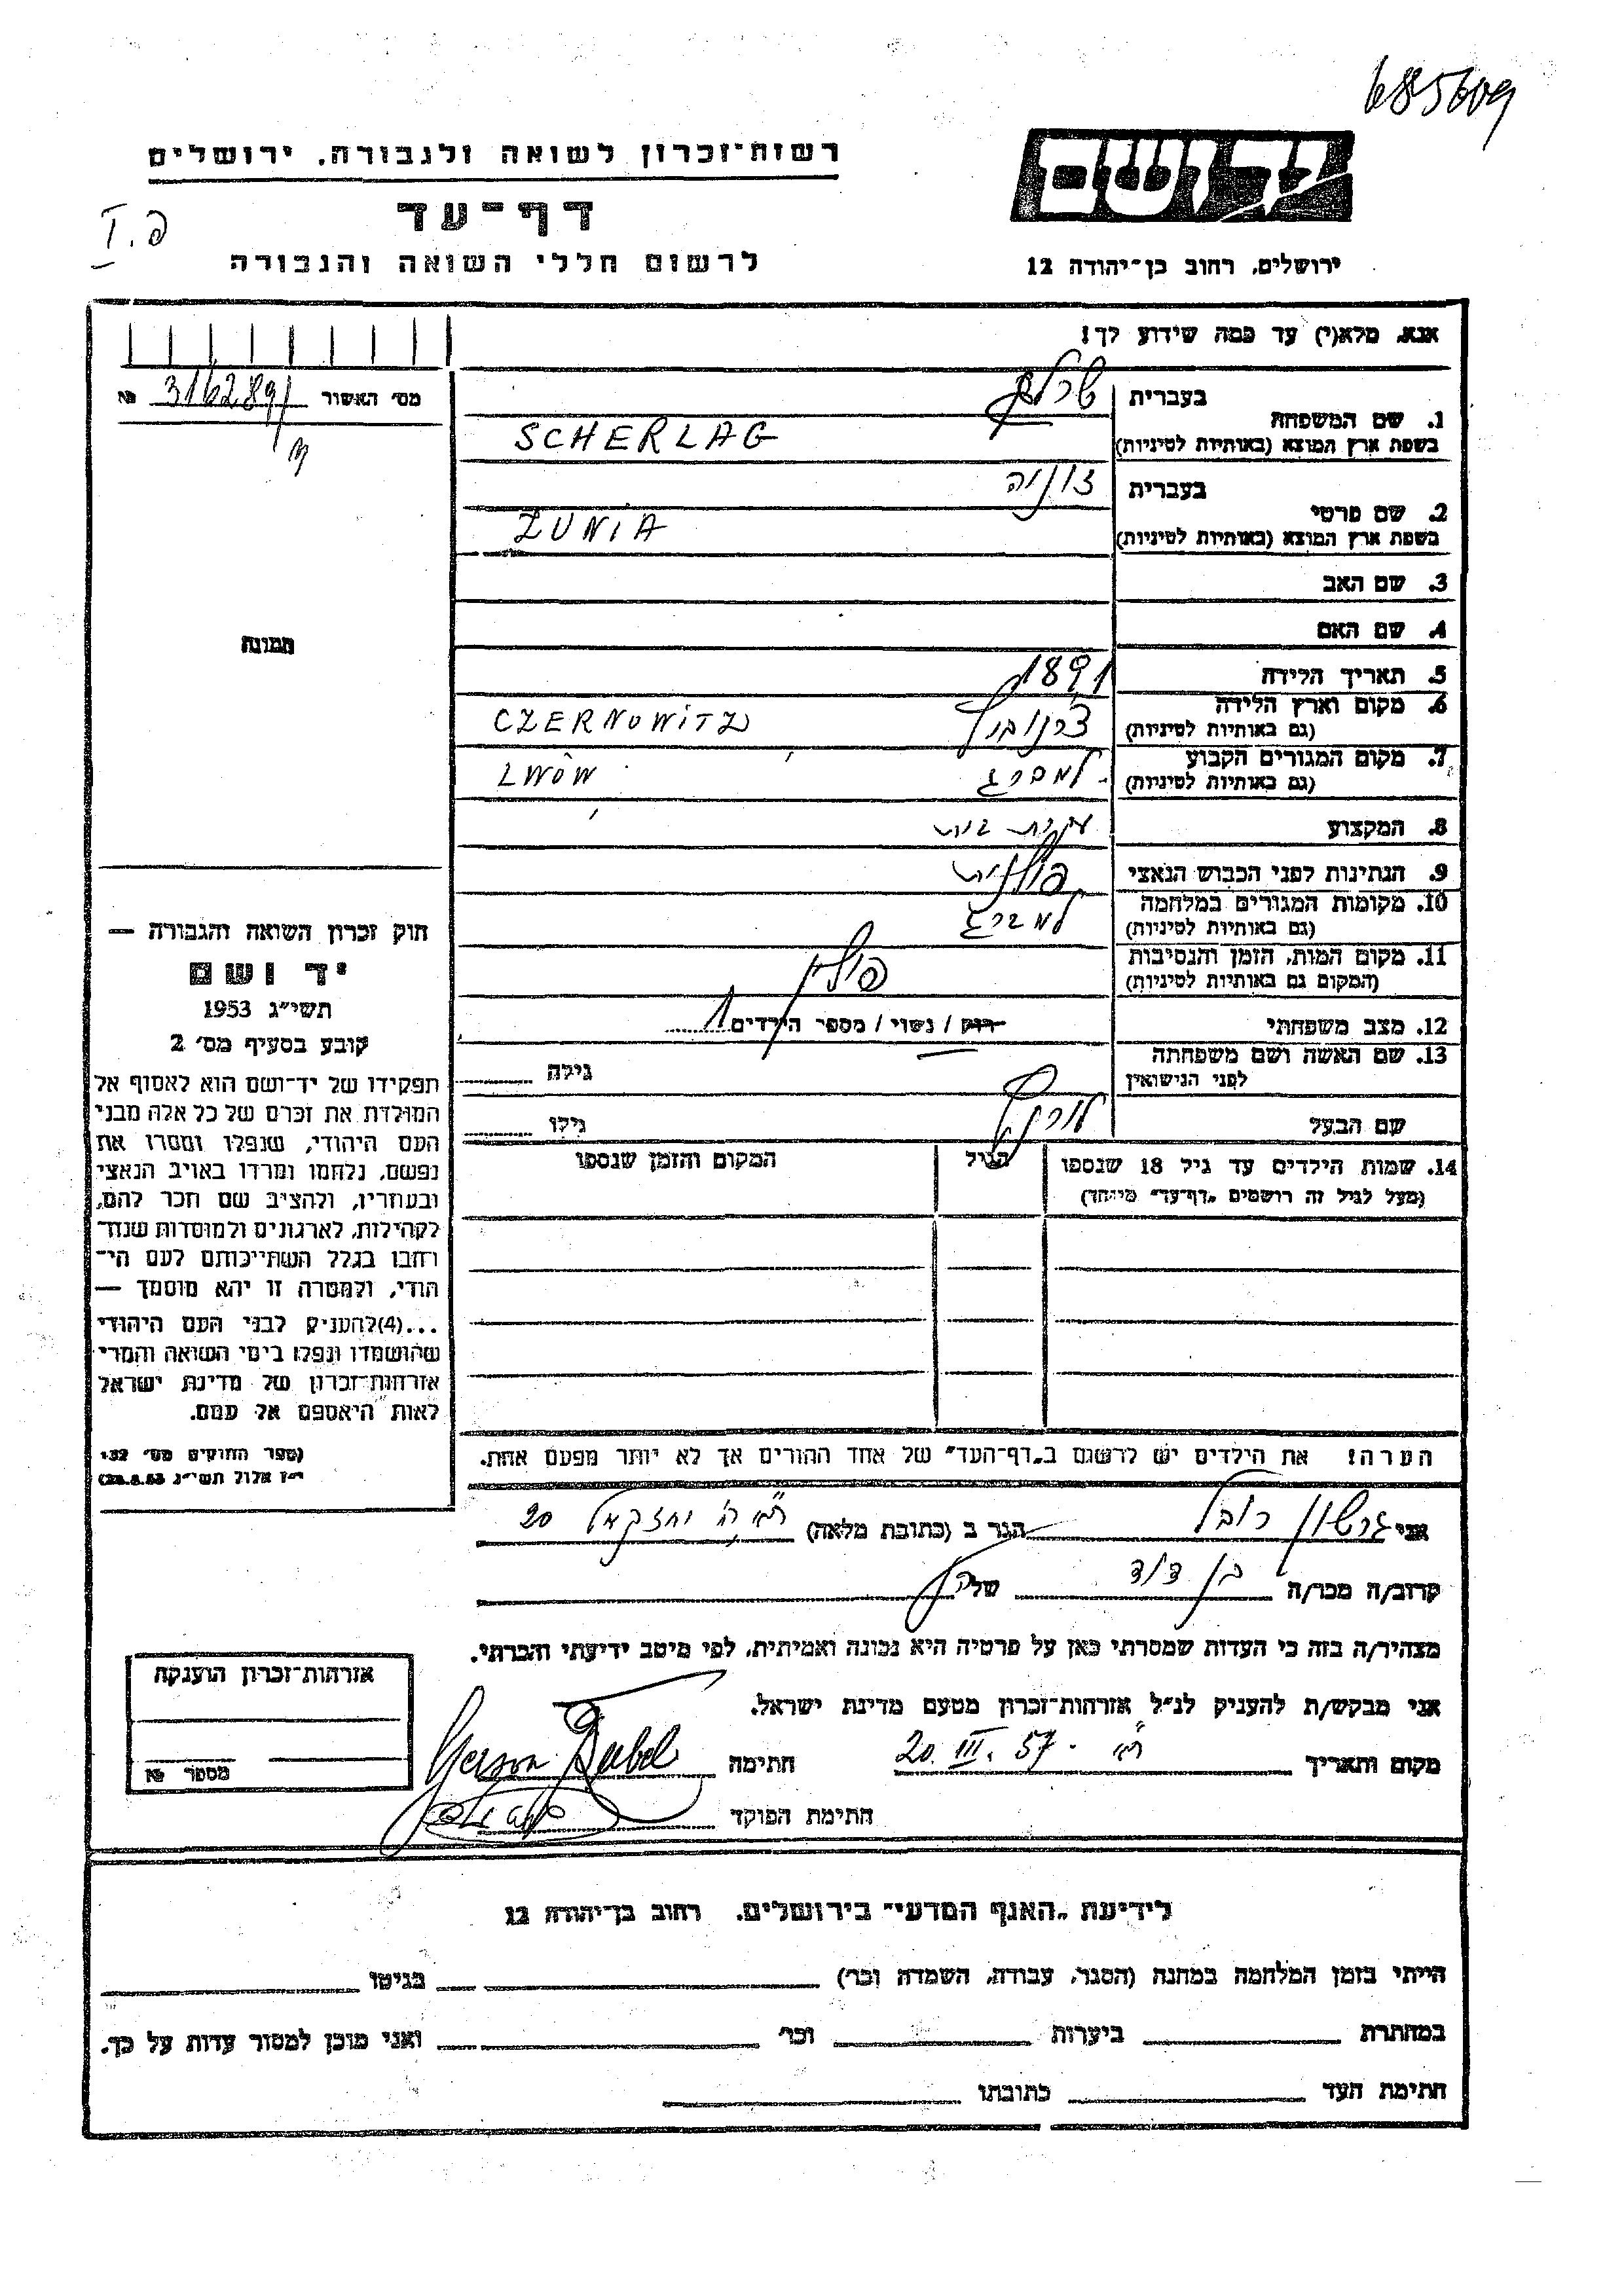 685609
רשות-זכרון לשואה ולגבורה, ירושלים
יד ושם
דף-עד
פ. I
לרשום חללי השואה והגבורה
ירושלים, רחוב בן-יהודה 12
אנא, מלא(י) עד כמה שידוע לך!
מס׳ האשור № 316289/
בעברית שרלג
1. שם המשפחה
בשפת ארץ המוצא (באותיות לטיניות) SCHERLAG
בעברית זוניה
2. שם פרטי
בשפת ארץ המוצא (באותיות לטיניות) ZUNIA
3. שם האב
4. שם האם
תמונה
5. תאריך הלידה 1891
6. מקום וארץ הלידה
(גם באותיות לטיניות) CZERNOWITZ
7. מקום המגורים הקבוע למברג
(גם באותיות לטיניות) LWÓW
8. המקצוע עקרת בית
9. הנתינות לפני הכבוש הנאצי פולנית
10. מקומות המגורים במלחמה למברג
(גם באותיות לטיניות)
11. מקום המות, הזמן והנסיבות פולין
(המקום גם באותיות לטיניות)
12. מצב משפחתי רוק / נשוי / מספר הילדים 1
13. שם האשה ושם משפחתה
לפני הנישואין גילה
שם הבעל גילו
14. שמות הילדים עד גיל 18 שנספו הגיל המקום והזמן שנספו
(מעל לגיל זה רושמים „דף-עד" מיוחד)
חוק זכרון השואה והגבורה —
יד ושם
תשי״ג 1953
קובע בסעיף מס׳ 2
תפקידו של יד-ושם הוא לאסוף אל
המולדת את זכרם של כל אלה מבני
העם היהודי, שנפלו ומסרו את
נפשם, נלחמו ומרדו באויב הנאצי
ובעוזריו, ולהציב שם וזכר להם,
לקהילות, לארגונים ולמוסדות שנח-
רבו בגלל השתייכותם לעם הי-
הודי, ולמטרה זו יהא מוסמך —
...(4)להעניק לבני העם היהודי
שהושמדו ונפלו בימי השואה והמרי
אזרחות-זכרון של מדינת ישראל
לאות היאספם אל עמם.
(ספר החוקים מס׳ 132
י״ז אלול תשי״ג 28.8.53)
הערה! את הילדים יש לרשום ב„דף-העד" של אחד ההורים אך לא יותר מפעם אחת.
אני גרשון רובל הגר ב (כתובת מלאה) ת״א יחזקאל 20
קרוב/ה מכר/ה בן דוד של
מצהיר/ה בזה כי העדות שמסרתי כאן על פרטיה היא נכונה ואמיתית, לפי מיטב ידיעתי והכרתי.
אני מבקש/ת להעניק לנ״ל אזרחות-זכרון מטעם מדינת ישראל.
מקום ותאריך ת״א 20. III. 57 חתימה
חתימת הפוקד
אזרחות-זכרון הוענקה
מספר №
לידיעת „האגף המדעי" בירושלים, רחוב בן-יהודה 12
הייתי בזמן המלחמה במחנה (הסגר, עבודה, השמדה וכו׳) בגיטו
במחתרת ביערות וכו׳ ואני מוכן למסור עדות על כך.
חתימת העד כתובתו